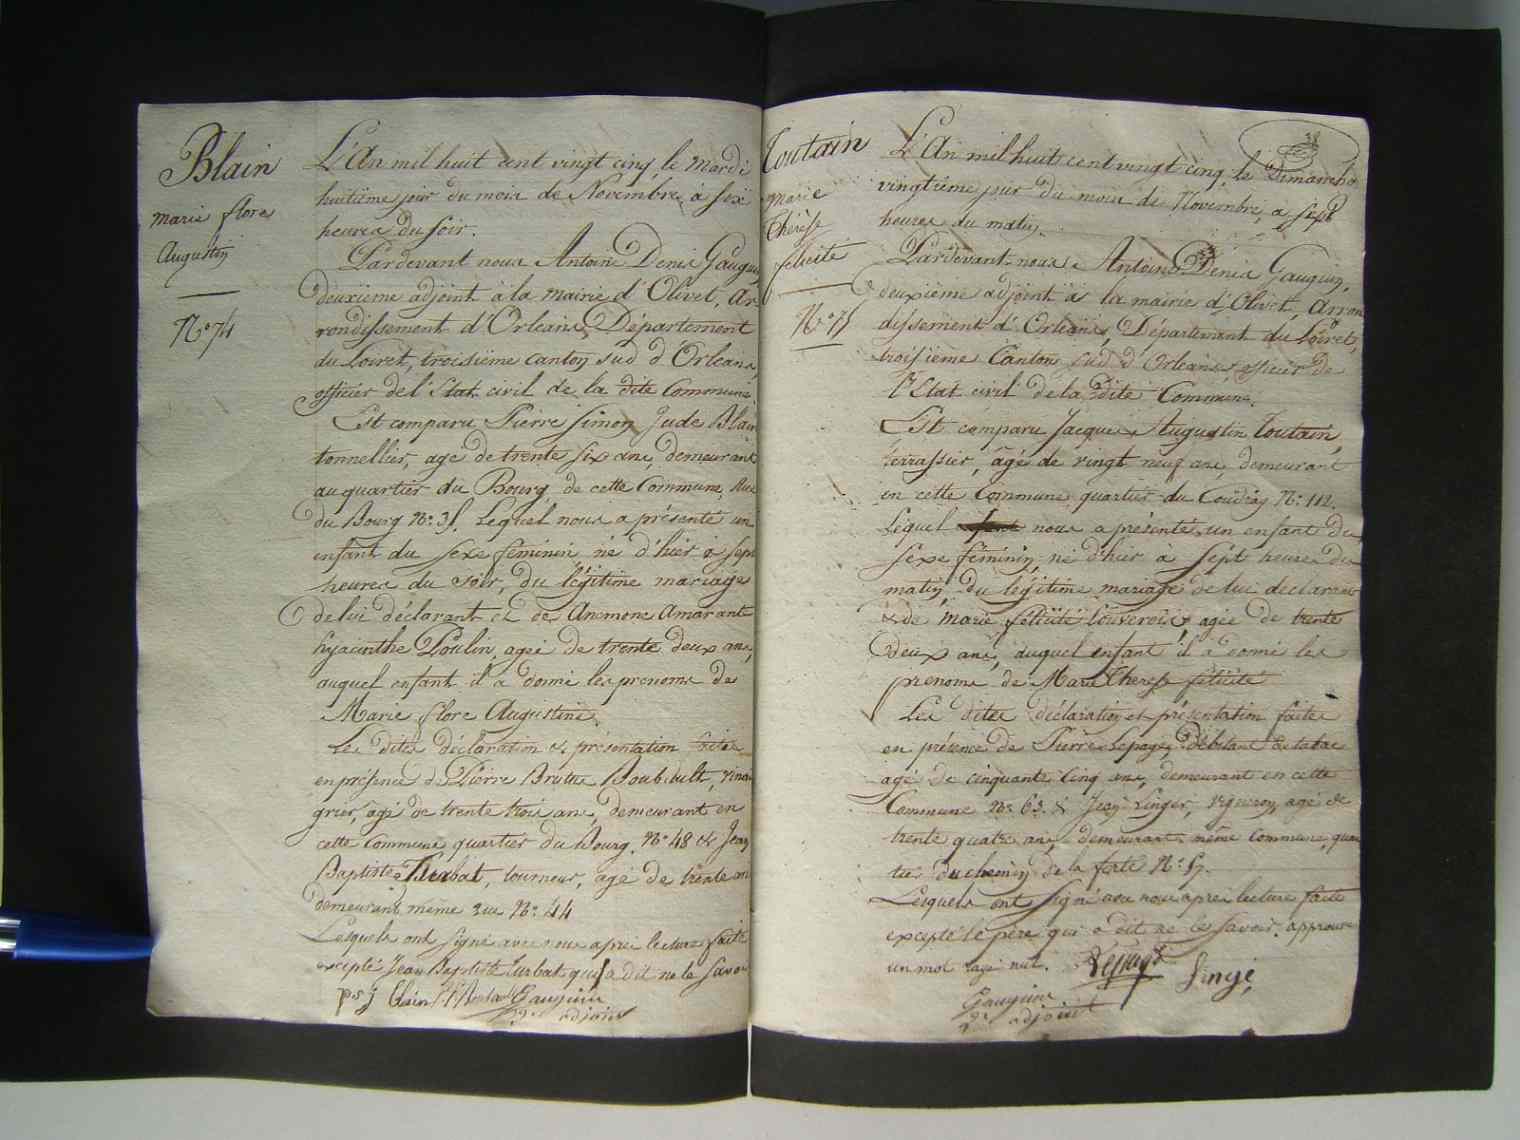 Blain
marie flore
Augustin
N.º 74
L'An mil huit cent vingt cinq, le mardi
huitième jour du mois de Novembre, à six
heures du soir.
Pardevant nous Antoine Denis Gauguin
deuxième adjoint à la mairie d'Olivet, ar-
rondissement d'Orléans, Département
du Loiret, troisième canton sud d'Orléans,
officier de l'Etat civil de la dite Commune.
Est comparu Pierre Simon Jude Blain
tonnellier, agé de trente six ans, demeurant
au quartier du Bourg de cette Commune, Rue
du Bourg N.º 35. Lequel nous a présenté un
enfant du sexe féminin né d'hier à sept
heures du soir, du légitime mariage
de lui déclarant et de Anemone Amarante
hyacinthe Poulin, agée de trente deux ans,
auquel enfant il a donné les prenoms de
Marie flore Augustine.
Les dites déclaration et présentation faites
en présence de Pierre Brutus Boubault, vinai-
grier, âgé de trente trois ans, demeurant en
cette Commune quartier du Bourg. N.º 48 & Jean
Baptiste Turbat, tourneur, agé de trente ans
demeurant même rue N.º 44
Lesquels ont signé avec nous après lecture faite
excepté Jean Baptiste Turbat qui a dit ne le savoir
p s j blain
Gauguin
2e adjoint
Toutain
marie
Thérèse
félicité
N.º 75
38
L'An mil huit cent vingt cinq, le Dimanche
vingtième jour du mois de Novembre, à sept
heures du matin.
Pardevant nous Antoine Denis Gauguin,
deuxième adjoint à la mairie d'Olivet, Arron
dissement d'Orléans, Département du Loiret,
troisième Canton sud d'Orléans, officier de
l'Etat civil de la dite Commune.
Est comparu Jacques Augustin Toutain,
terrassier, âgé de vingt neuf ans, demeurant
en cette Commune quartier du Coudray N.º 112.
Lequel nous a présenté un enfant du
sexe féminin, né d'hier à sept heures du
matin, du légitime mariage de lui déclarant
& de marie félicité Louverois agée de trente
deux ans, auquel enfant il a donné les
prenoms de Marie Therese félicité
Les dites déclaration et présentation faites
en présence de Pierre Lepage, Débitant de tabac
agé de cinquante cinq ans, demeurant en cette
Commune N.º 63. & Jean Singer, vigneron, agé de
trente quatre ans, demeurant même Commune, quar
tier du chemin de la ferté N.º 57.
Lesquels ont signé avec nous après lecture faite
excepté le père qui a dit ne le savoir. approuvé
un mot rayé nul.
Gauguin
2e adjoint